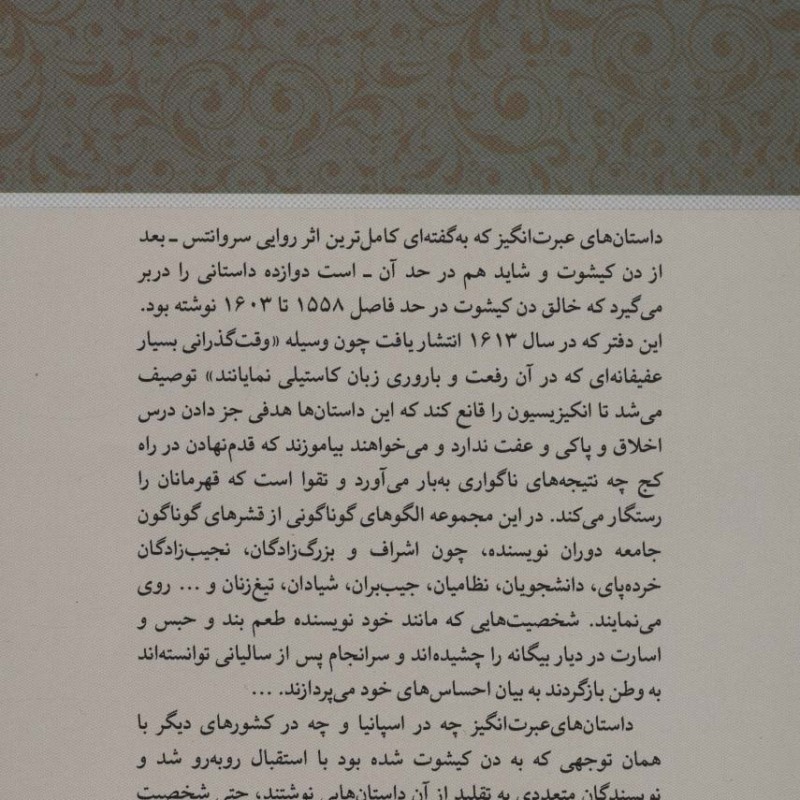 داستان‌های عبرت‌انگیز که به‌گفته‌ای کامل‌ترین اثر روایی سروانتس ـ بعد
از دن کیشوت و شاید هم در حد آن ـ است دوازده داستانی را دربر
می‌گیرد که خالق دن کیشوت در حد فاصل ۱۵۵۸ تا ۱۶۰۳ نوشته بود.
این دفتر که در سال ۱۶۱۳ انتشار یافت چون وسیله «وقت‌گذرانی بسیار
عفیفانه‌ای که در آن رفعت و باروری زبان کاستیلی نمایانند» توصیف
می‌شد تا انکیزیسیون را قانع کند که این داستان‌ها هدفی جز دادن درس
اخلاق و پاکی و عفت ندارد و می‌خواهند بیاموزند که قدم‌نهادن در راه
کج چه نتیجه‌های ناگواری به‌بار می‌آورد و تقوا است که قهرمانان را
رستگار می‌کند. در این مجموعه الگوهای گوناگونی از قشرهای گوناگون
جامعه دوران نویسنده، چون اشراف و بزرگ‌زادگان، نجیب‌زادگان
خرده‌پای، دانشجویان، نظامیان، جیب‌بران، شیادان، تیغ‌زنان و ... روی
می‌نمایند. شخصیت‌هایی که مانند خود نویسنده طعم بند و حبس و
اسارت در دیار بیگانه را چشیده‌اند و سرانجام پس از سالیانی توانسته‌اند
به وطن بازگردند به بیان احساس‌های خود می‌پردازند. ...
داستان‌های‌عبرت‌انگیز چه در اسپانیا و چه در کشورهای دیگر با
همان توجهی که به دن کیشوت شده بود با استقبال روبه‌رو شد و
نویسندگان متعددی به تقلید از آن داستان‌هایی نوشتند، حتی شخصیت